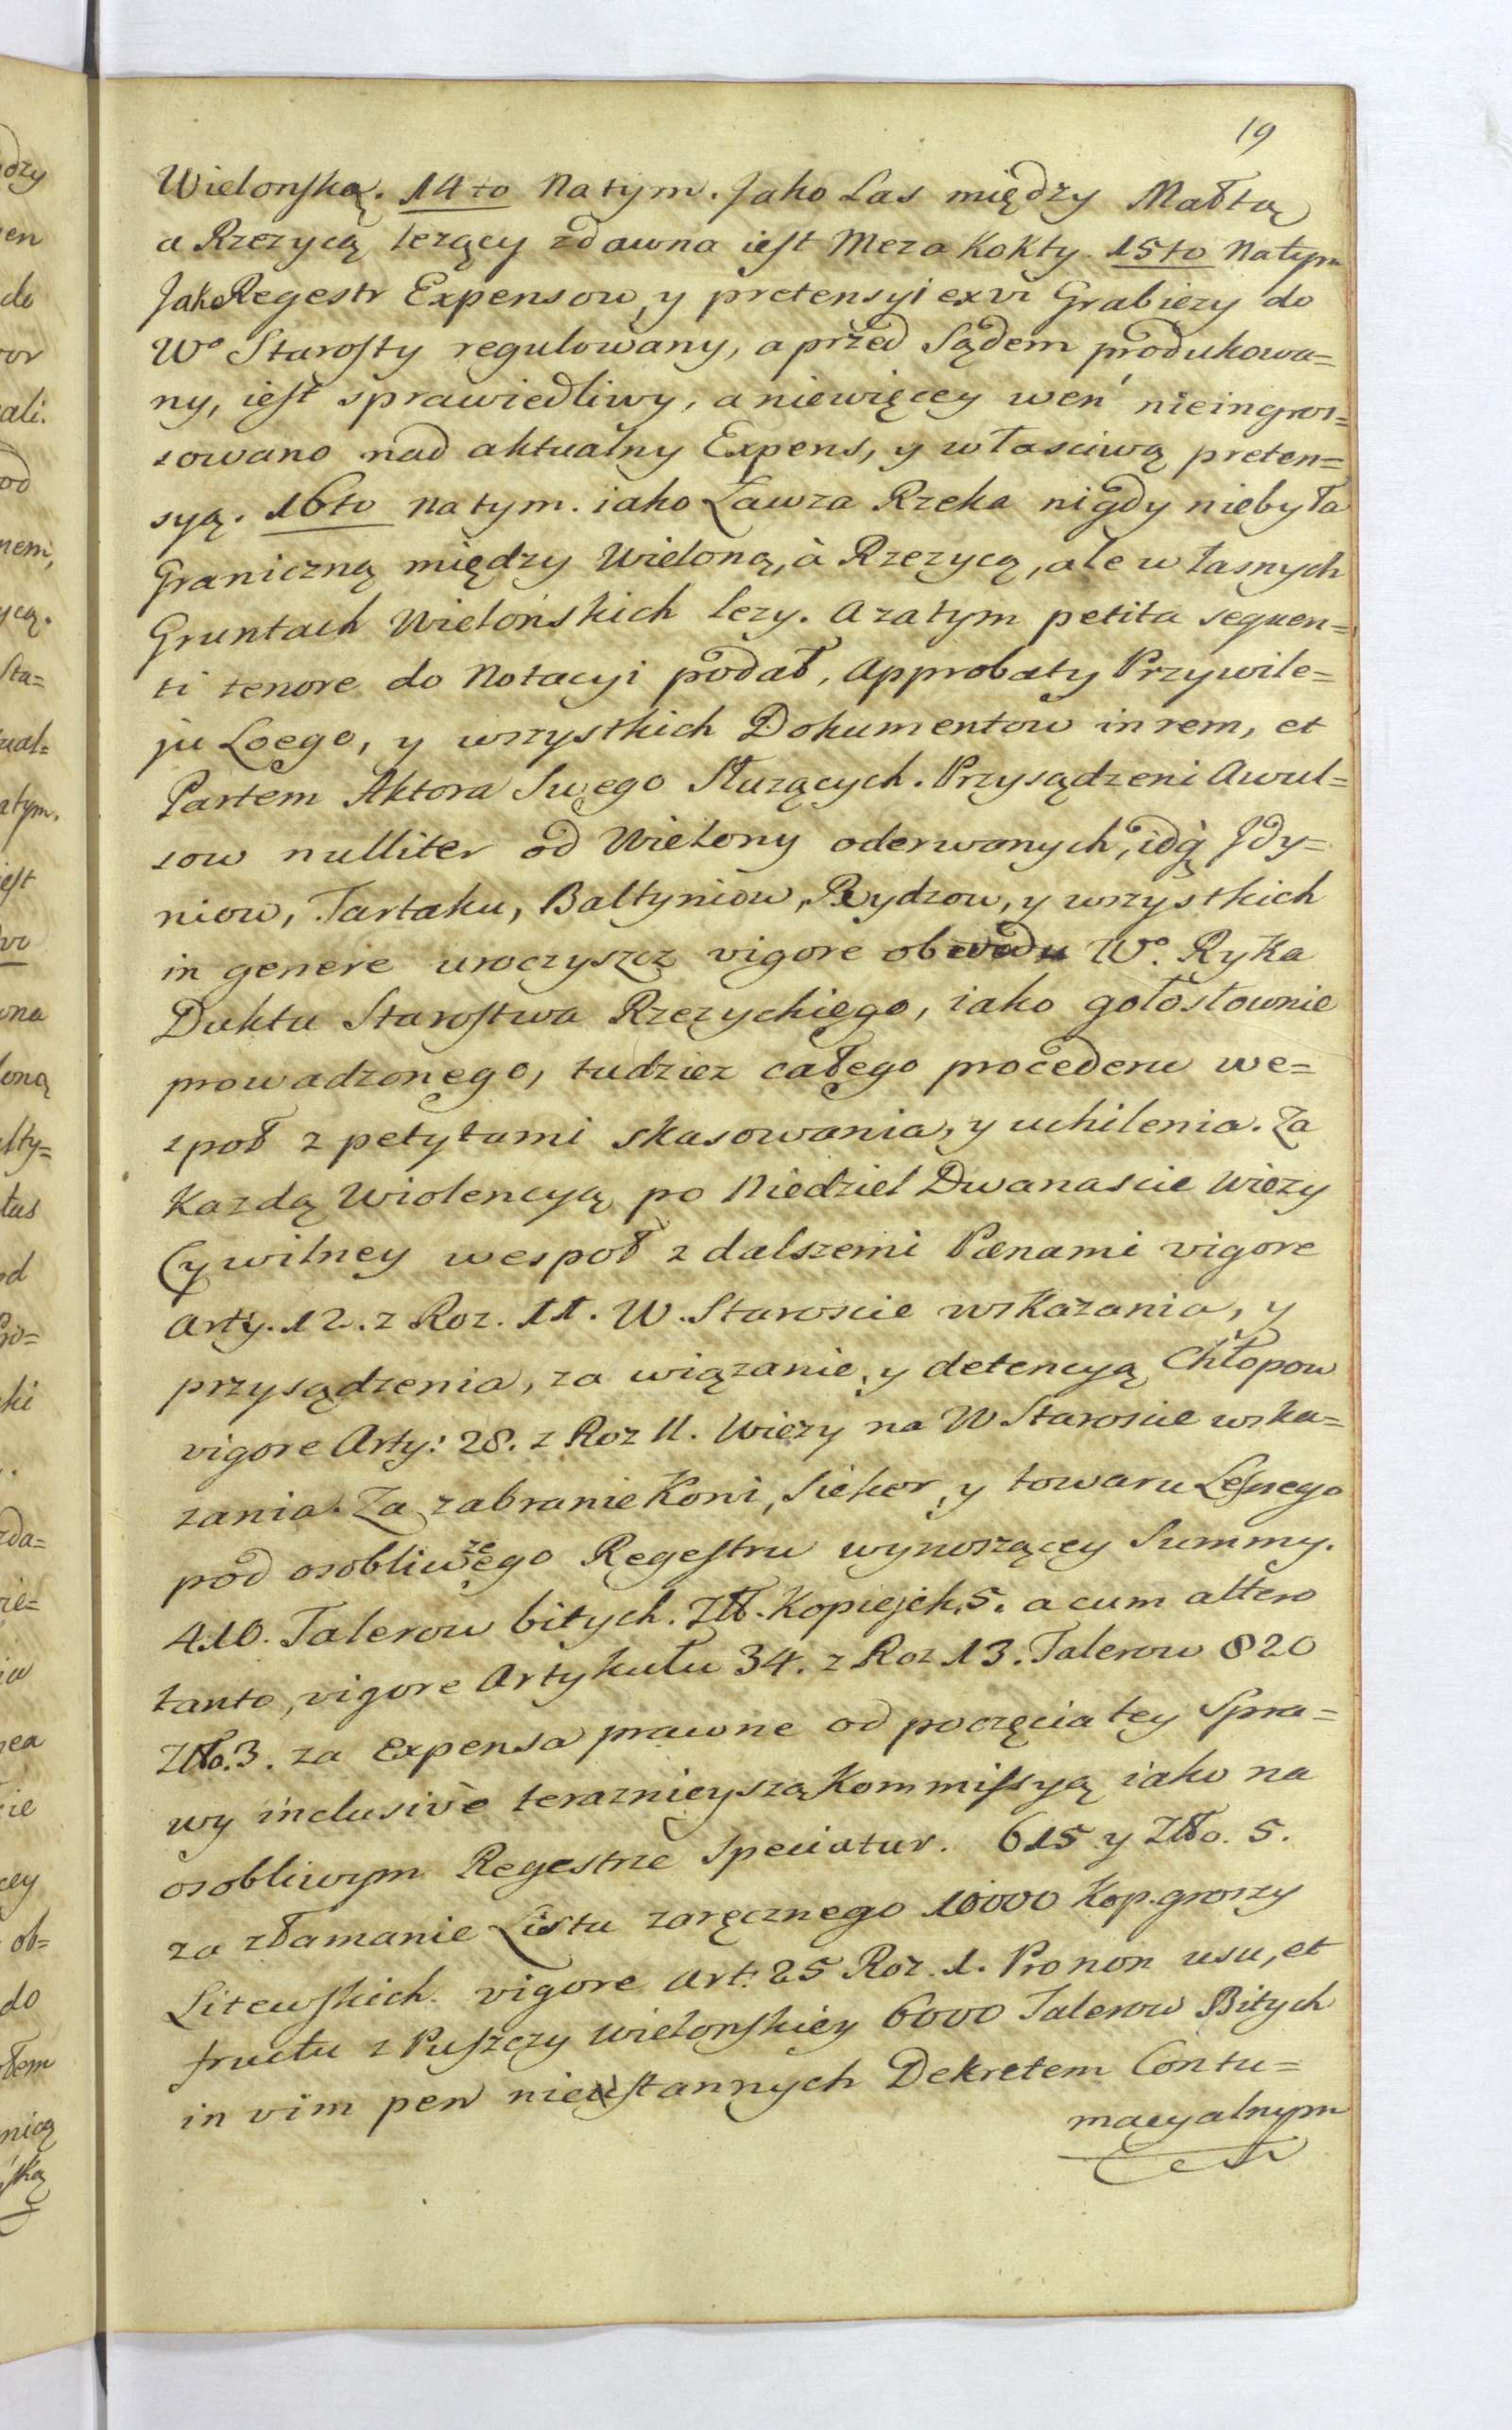 19
Wielonską. 14to Na tym. Jako Las między Małtą
a Rzezycą lezący zdawna iest Meza Kokty. 15to Natym
Jako Regestr Expensow, y pretensyi ex vi Grabiezy do
Wo Starosty regulowany, a przed Sądem produkowa=
ny, iest sprawiedliwy, a niewięcey weń nieingros=
sowano nad aktualny Expens, y własciwą preten=
syą. 16to na tym. iako Zawza Rzeka nigdy niebyła
Graniczną między Wieloną, à Rzezycą, ale własnych
Gruntach Wielońskich lezy. A zatym petita sequen=
ti tenore do Notacyi podał, Approbaty Przywile=
ju Loego, y wszystkich Dokumentow in rem, et
Partem Aktora Swego Służących. Przysądzeni Awul=
sow nulliter od Wielony oderwanych, idą Jdy=
niow, Tartaku, Baltyniow, Rydzow, y wszystkich
in genere uroczyszcz vigore obwodu Wo. Ryka
Duktu Starostwa Rzezyckiego, iako gołosłownie
prowadzonego, tudziez całego procederu we=
społ z petytami skasowania, y uchilenia. Za
Kazdą Wiolencyą po Niedziel Dwanascie Wiezy
Cywilney wespoł z dalszemi Pœnami vigore
Arty. 12. z Roz. 11. W. Staroscie wskazania, y
przysądzenia, za wiązanie, y detencyą Chłopow
vigore Arty: 28. z Roz 11. Wiezy na W Staroscie wska=
zania. Za zabranie Koni, Siekor, y towaru Lesnego
pod osobliwszego Regestru wynoszącey Summy.
410. Talerow bitych. Zlł. Kopiejek. 5. a cum altero
tanto, vigore Artykułu 34. z Roz 13. Talerow 820
Złło. 3. za Expensa prawne od poczęcia tey Spra=
wy inclusivè teraznieyszą Kommissyą iako na
osobliwym Regestrze speciatur. 615 y Złło. 5.
za złamanie Listu zaręcznego 10000 Kop. groszy
Litewskich. vigore Art: 25 Roz. 1. Pro non usu, et
fructu z Puszczy Wielonskiey 6000 Talerow Bitych
in vim pen niestannych Dekretem Contu=
macyalnym